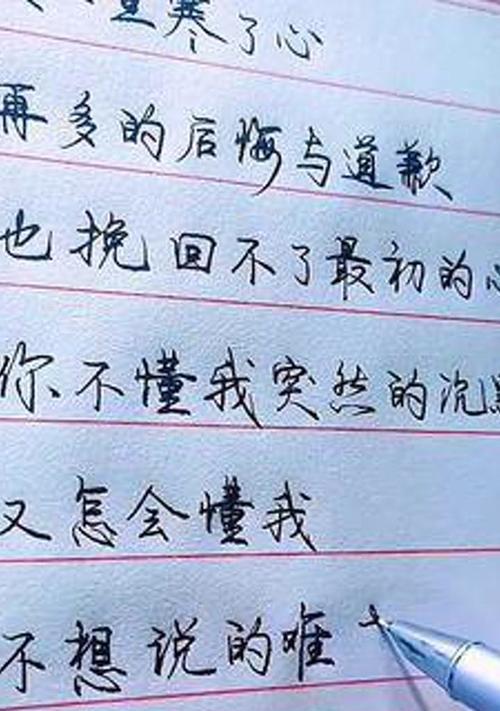 寒了心
再多的后悔与道歉
也挽回不了最初的心
你不懂我突然的沉默
又怎会懂我
不想说的难